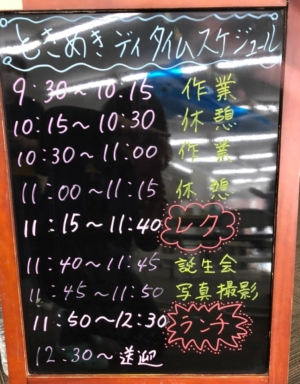 ときめきデイタイムスケジュール
9:30～10:15 作業
10:15～10:30 休憩
10:30～11:00 作業
11:00～11:15 休憩
11:15～11:40 レク
11:40～11:45 誕生会
11:45～11:50 写真撮影
11:50～12:30 ランチ
12:30～送迎